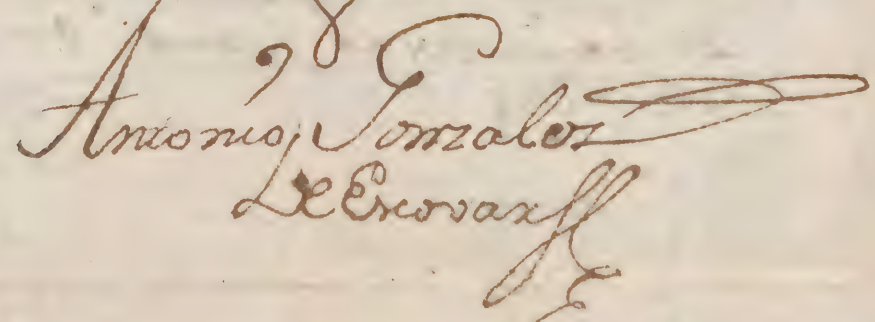 Antonio Gonzalez
De Escovar